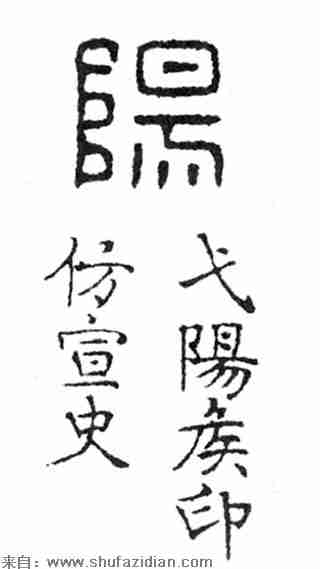 陽
弋陽矦印
仿宣史
来自：www.shufazidian.com